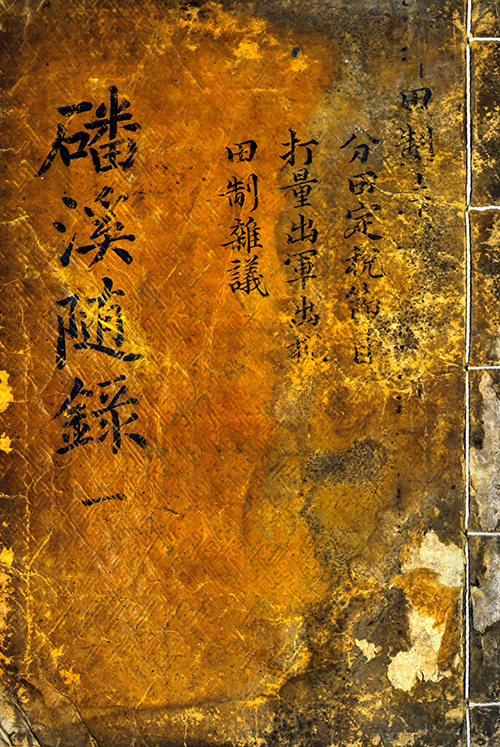 田制上
分田定稅節目
打量出軍出稅
田制雜議
磻溪隨錄 一